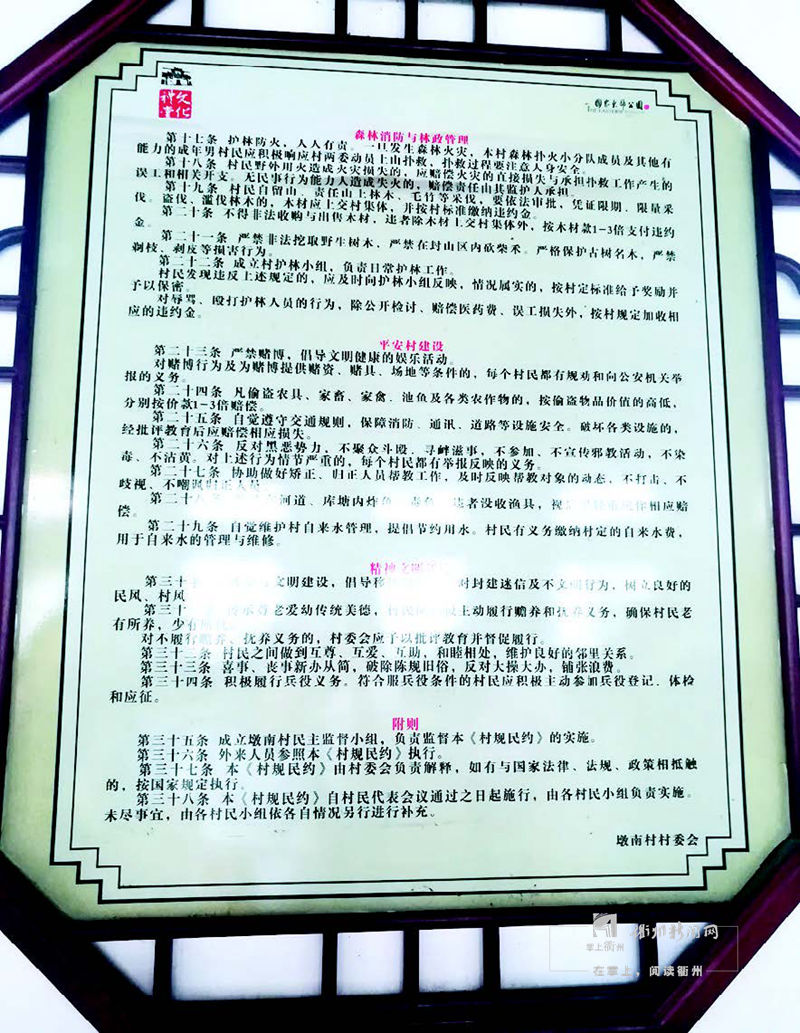 文化
礼堂
国家东部公园
森林消防与林政管理
第十七条 护林防火,人人有责。一旦发生森林火灾,本村森林扑火小分队成员及其他有
能力的成年男村民应积极响应村两委动员上山扑救,扑救过程要注意人身安全。
第十八条 村民野外用火造成火灾损失的,应赔偿火灾的直接损失与承担扑救工作产生的
误工和相关开支。无民事行为能力人造成失火的,赔偿责任由其监护人承担。
第十九条 村民自留山、责任山上林木、毛竹等采伐,要依法审批,凭证限期、限量采
伐。盗伐、滥伐林木的,木材应上交村集体,并按村标准缴纳违约金。
第二十条 不得非法收购与出售木材,违者除木材上交村集体外,按木材款1-3倍支付违约
金。
第二十一条 严禁非法挖取野生树木,严禁在封山区内砍柴禾。严格保护古树名木,严禁
剃枝、剥皮等损害行为。
第二十二条 成立村护林小组,负责日常护林工作。
村民发现违反上述规定的,应及时向护林小组反映,情况属实的,按村定标准给予奖励并
予以保密。
对辱骂、殴打护林人员的行为,除公开检讨、赔偿医药费、误工损失外,按村规定加收相
应的违约金。
平安村建设
第二十三条 严禁赌博,倡导文明健康的娱乐活动。
对赌博行为及为赌博提供赌资、赌具、场地等条件的,每个村民都有规劝和向公安机关举
报的义务。
第二十四条 凡偷盗农具、家畜、家禽、池鱼及各类农作物的,按偷盗物品价值的高低,
分别按价款1-3倍赔偿。
第二十五条 自觉遵守交通规则,保障消防、通讯、道路等设施安全。破坏各类设施的,
经批评教育后应赔偿相应损失。
第二十六条 反对黑恶势力,不聚众斗殴、寻衅滋事,不参加、不宣传邪教活动,不染
毒、不沾黄。对上述行为情节严重的,每个村民都有举报反映的义务。
第二十七条 协助做好矫正、归正人员帮教工作,及时反映帮教对象的动态,不打击、不
歧视、不嘲讽归正人员
第二十八 河道、库塘内炸鱼 毒鱼 违者没收渔具,视 作相应赔
偿。
第二十九条 自觉维护村自来水管理,提倡节约用水。村民有义务缴纳村定的自来水费,
用于自来水的管理与维修。
精神文明
第三十 文明建设,倡导移 对封建迷信及不文明行为,树立良好的
民风、村风
第三十 尊老爱幼传统美德, 主动履行赡养和抚养义务,确保村民老
有所养,少有
对不履行赡养、抚养义务的,村委会应予以批评教育并督促履行。
第三十二条 村民之间做到互尊、互爱、互助,和睦相处,维护良好的邻里关系。
第三十三条 喜事、丧事新办从简,破除陈规旧俗,反对大操大办,铺张浪费。
第三十四条 积极履行兵役义务。符合服兵役条件的村民应积极主动参加兵役登记、体检
和应征。
附则
第三十五条 成立墩南村民主监督小组,负责监督本《村规民约》的实施。
第三十六条 外来人员参照本《村规民约》执行。
第三十七条 本《村规民约》由村委会负责解释,如有与国家法律、法规、政策相抵触
的,按国家规定执行。
第三十八条 本《村规民约》自村民代表会议通过之日起施行,由各村民小组负责实施。
未尽事宜,由各村民小组依各自情况另行进行补充。
墩南村村委会
掌上衢州
衢州新闻网
在掌上,阅读衢州